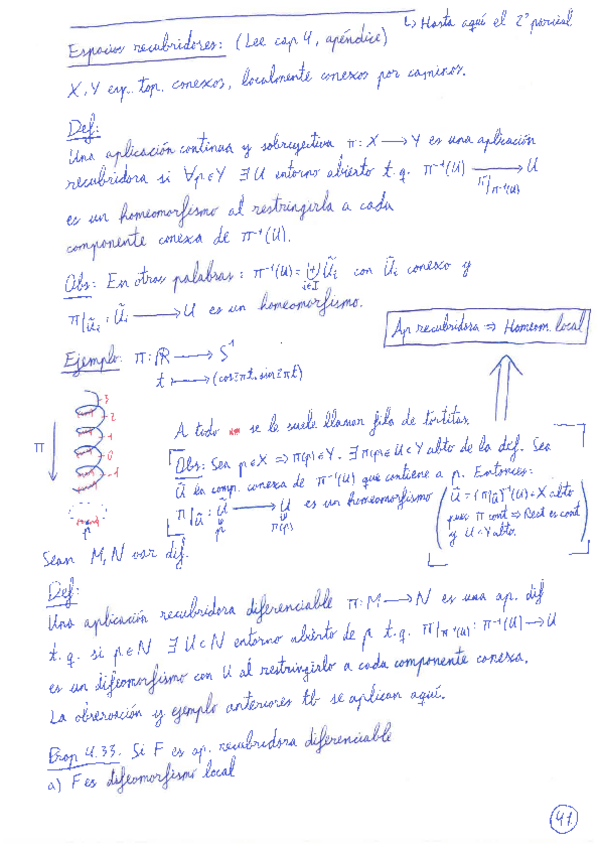 ↳ Hasta aquí el 2º parcial
Espacios recubridores: (Lee cap 4, apéndice)
X, Y esp. top. conexos, localmente conexos por caminos.
Def:
Una aplicación continua y sobreyectiva π: X → Y es una aplicación
recubridora si ∀p∈Y ∃ U entorno abierto t.q. π⁻¹(U) → U
π|π⁻¹(U)
es un homeomorfismo al restringirla a cada
componente conexa de π⁻¹(U).
Obs: En otras palabras: π⁻¹(U) = ⊎ Ũᵢ con Ũᵢ conexo y
i∈I
π|Ũᵢ : Ũᵢ → U es un homeomorfismo.
Ap recubridora ⇒ Homeom. local
Ejemplo: π: ℝ → S¹
t ↦ (cos2πt, sin2πt)
3
2
1
0
-1
π
p
A todo se le suele llamar pila de tortitas.
Obs: Sea p∈X ⇒ π(p)∈Y. ∃ π(p)∈U⊂Y abto de la def. Sea
Ũ la comp. conexa de π⁻¹(U) que contiene a p. Entonces:
π|Ũ : Ũ → U es un homeomorfismo
p π(p)
(Ũ = (π|Ũ)⁻¹(U) ⊂ X abto
pues π cont ⇒ Rest es cont
y U⊂Y abto.)
Sean M, N var dif.
Def:
Una aplicación recubridora diferenciable π: M → N es una ap. dif
t.q. si p∈N ∃ U⊂N entorno abierto de p t.q. π|π⁻¹(U) : π⁻¹(U) → U
es un difeomorfismo con U al restringirlo a cada componente conexa.
La observación y ejemplo anteriores tb se aplican aquí.
Prop 4.33. Si F es ap. recubridora diferenciable
a) F es difeomorfismo local
47